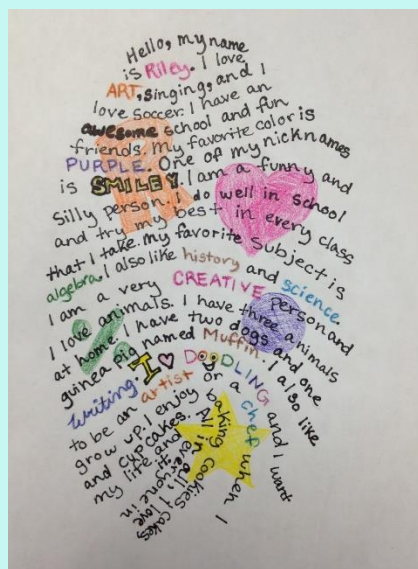 Hello, my name
is Riley. I love
ART, singing, and I
love soccer. I have an
awesome school and fun
friends. My favorite color is
PURPLE. One of my nicknames
is SMILEY. I am a funny and
silly person. I do well in school
and try my best in every class
that I take. My favorite subject is
algebra. I also like history and science.
I am a very CREATIVE person and
I love animals. I have three animals
at home. I have two dogs and one
guinea pig named Muffin. I also like
writing. I ♡ DOODLING and I want
to be an artist or a chef when I
grow up. I enjoy baking cookies, cakes,
and cupcakes. All in all, I love
my life and everyone in
it.